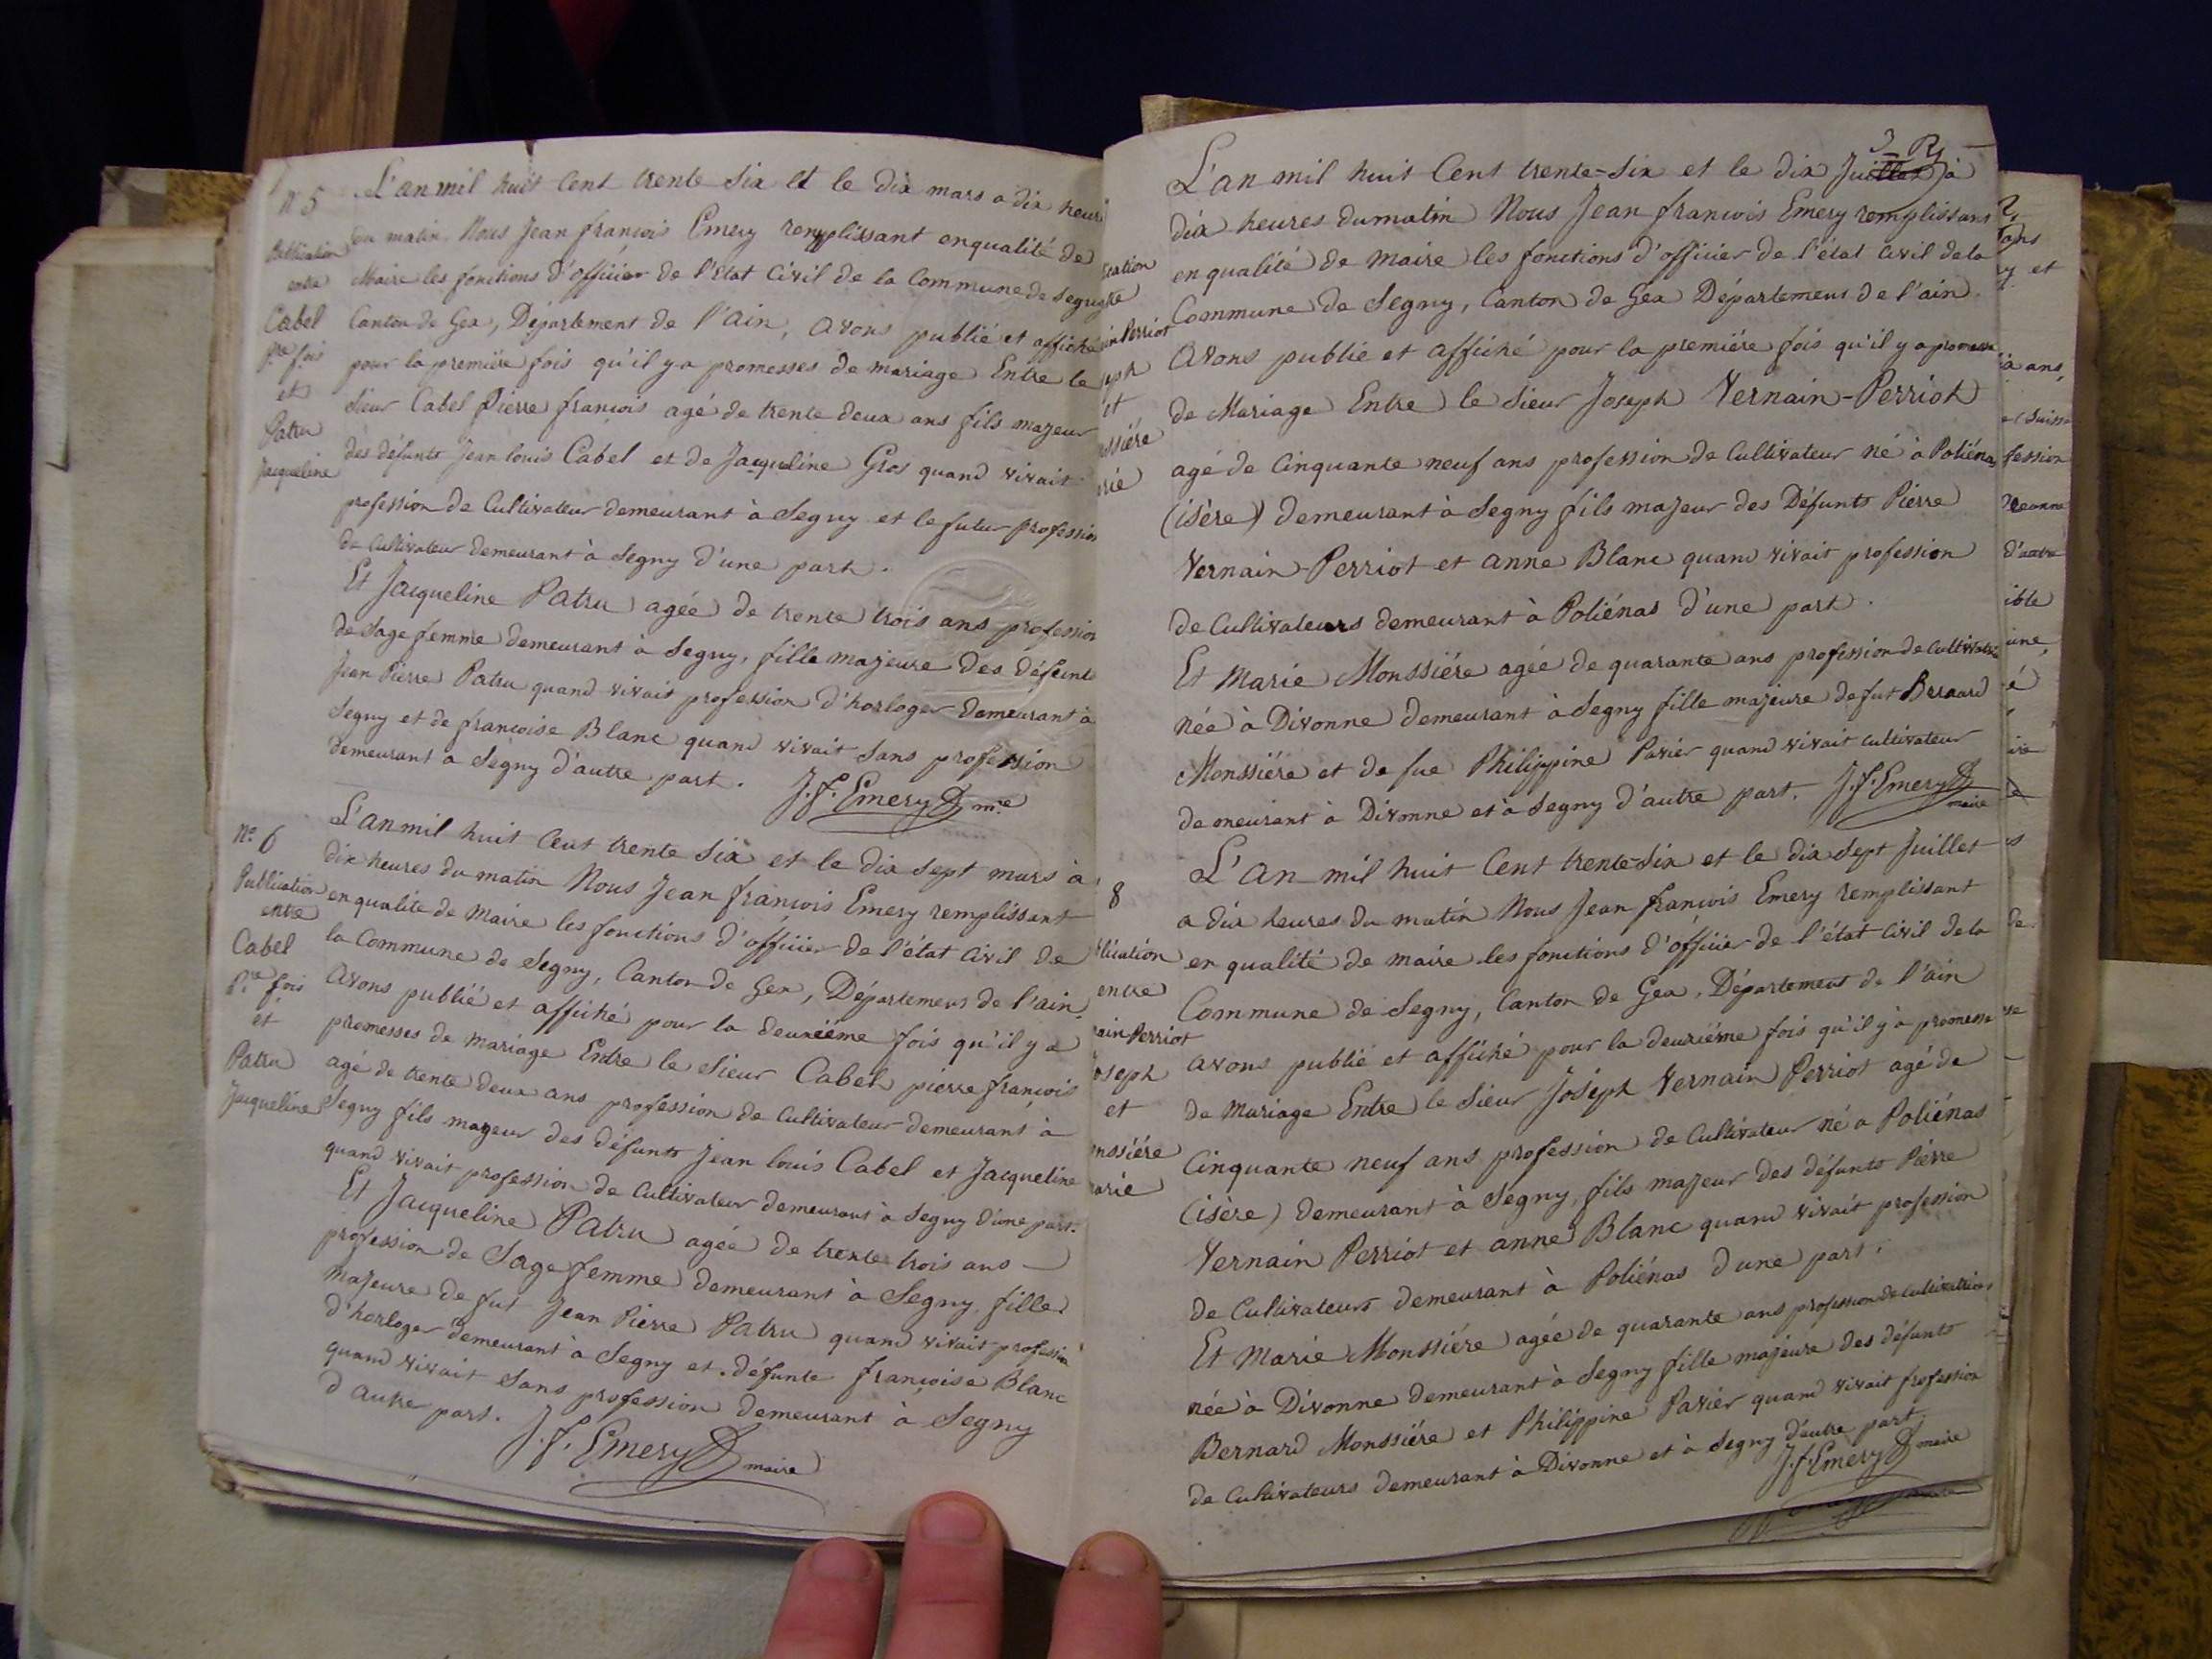 N° 5
Publication
entre
Cabel
P.re fois
et
Patru
Jacqueline
L'an mil huit Cent trente Six et le dix mars a dix heures
du matin. Nous Jean francois Emery remplissant enqualité de
Maire les fonctions d'officier de l'Etat Civil de la Commune de Segny
Canton de Gex, Département de l'Ain, avons publié et affiché
pour la première fois qu'il y a promesses de mariage Entre le
Sieur Cabel Pierre francois agé de trente deux ans fils majeur
des défunts Jean louis Cabel et de Jacqueline Gros quand vivait
profession de Cultivateur demeurant à Segny et le futur profession
de Cultivateur demeurant à Segny d'une part.
Et Jacqueline Patru agée de trente trois ans profession
de Sage femme demeurant à Segny, fille majeure des défunts
Jean Pierre Patru quand vivait profession d'horloger demeurant à
Segny et de francoise Blanc quand vivait Sans profession
demeurant a Segny d'autre part. J. f. Emery m.e
N.° 6
Publication
entre
Cabel
P.re fois
et
Patru
Jacqueline
L'an mil huit Cent trente Six et le dix sept mars à
dix heures du matin Nous Jean francois Emery remplissant
en qualité de Maire les fonctions d'officier de l'état Civil de
la Commune de Segny, Canton de Gex, Département de l'ain
avons publié et affiché pour la deuxiéme fois qu'il y a
promesses de mariage Entre le Sieur Cabel pierre francois
agé de trente deux ans profession de Cultivateur demeurant à
Segny fils mageur des défunts Jean louis Cabel et Jacqueline
quand vivait profession de Cultivateur demeurant à Segny d'une part.
Et Jacqueline Patru agée de trente trois ans
profession de Sage femme demeurant à Segny, fille
majeure de fut Jean Pierre Patru quand vivait profession
d'horloger demeurant à Segny et défunte francoise Blanc
quand vivait Sans profession demeurant à Segny
d'autre part. J. f. Emery maire
ication
ain Perriot
seph
et
ossiére
arie
L'an mil huit Cent trente-Six et le dix Juillet à
dix heures dumatin Nous Jean francois Emery remplissant
en qualité de maire les fonctions d'officier de l'état Civil dela
Commune de Segny, Canton de Gex Département de l'ain
Avons publié et affiché pour la premiére fois qu'il y a promesse
de Mariage Entre le Sieur Joseph Vernain-Perriot
agé de Cinquante neuf ans profession de Cultivateur né à Poliénas
(isère) demeurant à Segny fils majeur des Défunts Pierre
Vernain-Perriot et anne Blanc quand vivait profession
de Cultivateurs demeurant à Poliénas d'une part.
Et Marie Monssiére agée de quarante ans profession de Cultivatrice
née à Divonne demeurant à Segny fille majeure defut Bernard
Monssiére et de fue Philippine Pavier quand vivait cultivateur
demeurant à Divonne et à Segny d'autre part. J. f. Emery
maire
8
blication
entre
ain Perriot
oseph
et
onssiére
arie
L'an mil huit Cent trente-Six et le dix Sept Juillet
a dix heures du matin Nous Jean francois Emery remplissant
en qualité de maire les fonctions d'officier de l'état Civil dela
Commune de Segny, Canton de Gex, Département de l'ain
avons publié et affiché pour la deuxiéme fois qu'il y a promesse
de Mariage Entre le Sieur Joseph Vernain Perriot agé de
Cinquante neuf ans profession de Cultivateur né a Poliénas
(isère) demeurant à Segny fils majeur des défunts Pierre
Vernain Perriot et anne Blanc quand vivait profession
de Cultivateurs demeurant à Poliénas d'une part.
Et Marie Monssiére agée de quarante ans profession de Cultivatrice
née à Divonne demeurant à Segny fille majeure des défunts
Bernard Monssiére et Philippine Pavier quand vivait profession
de Cultivateurs demeurant à Divonne et à Segny d'autre part.
J. f. Emery maire